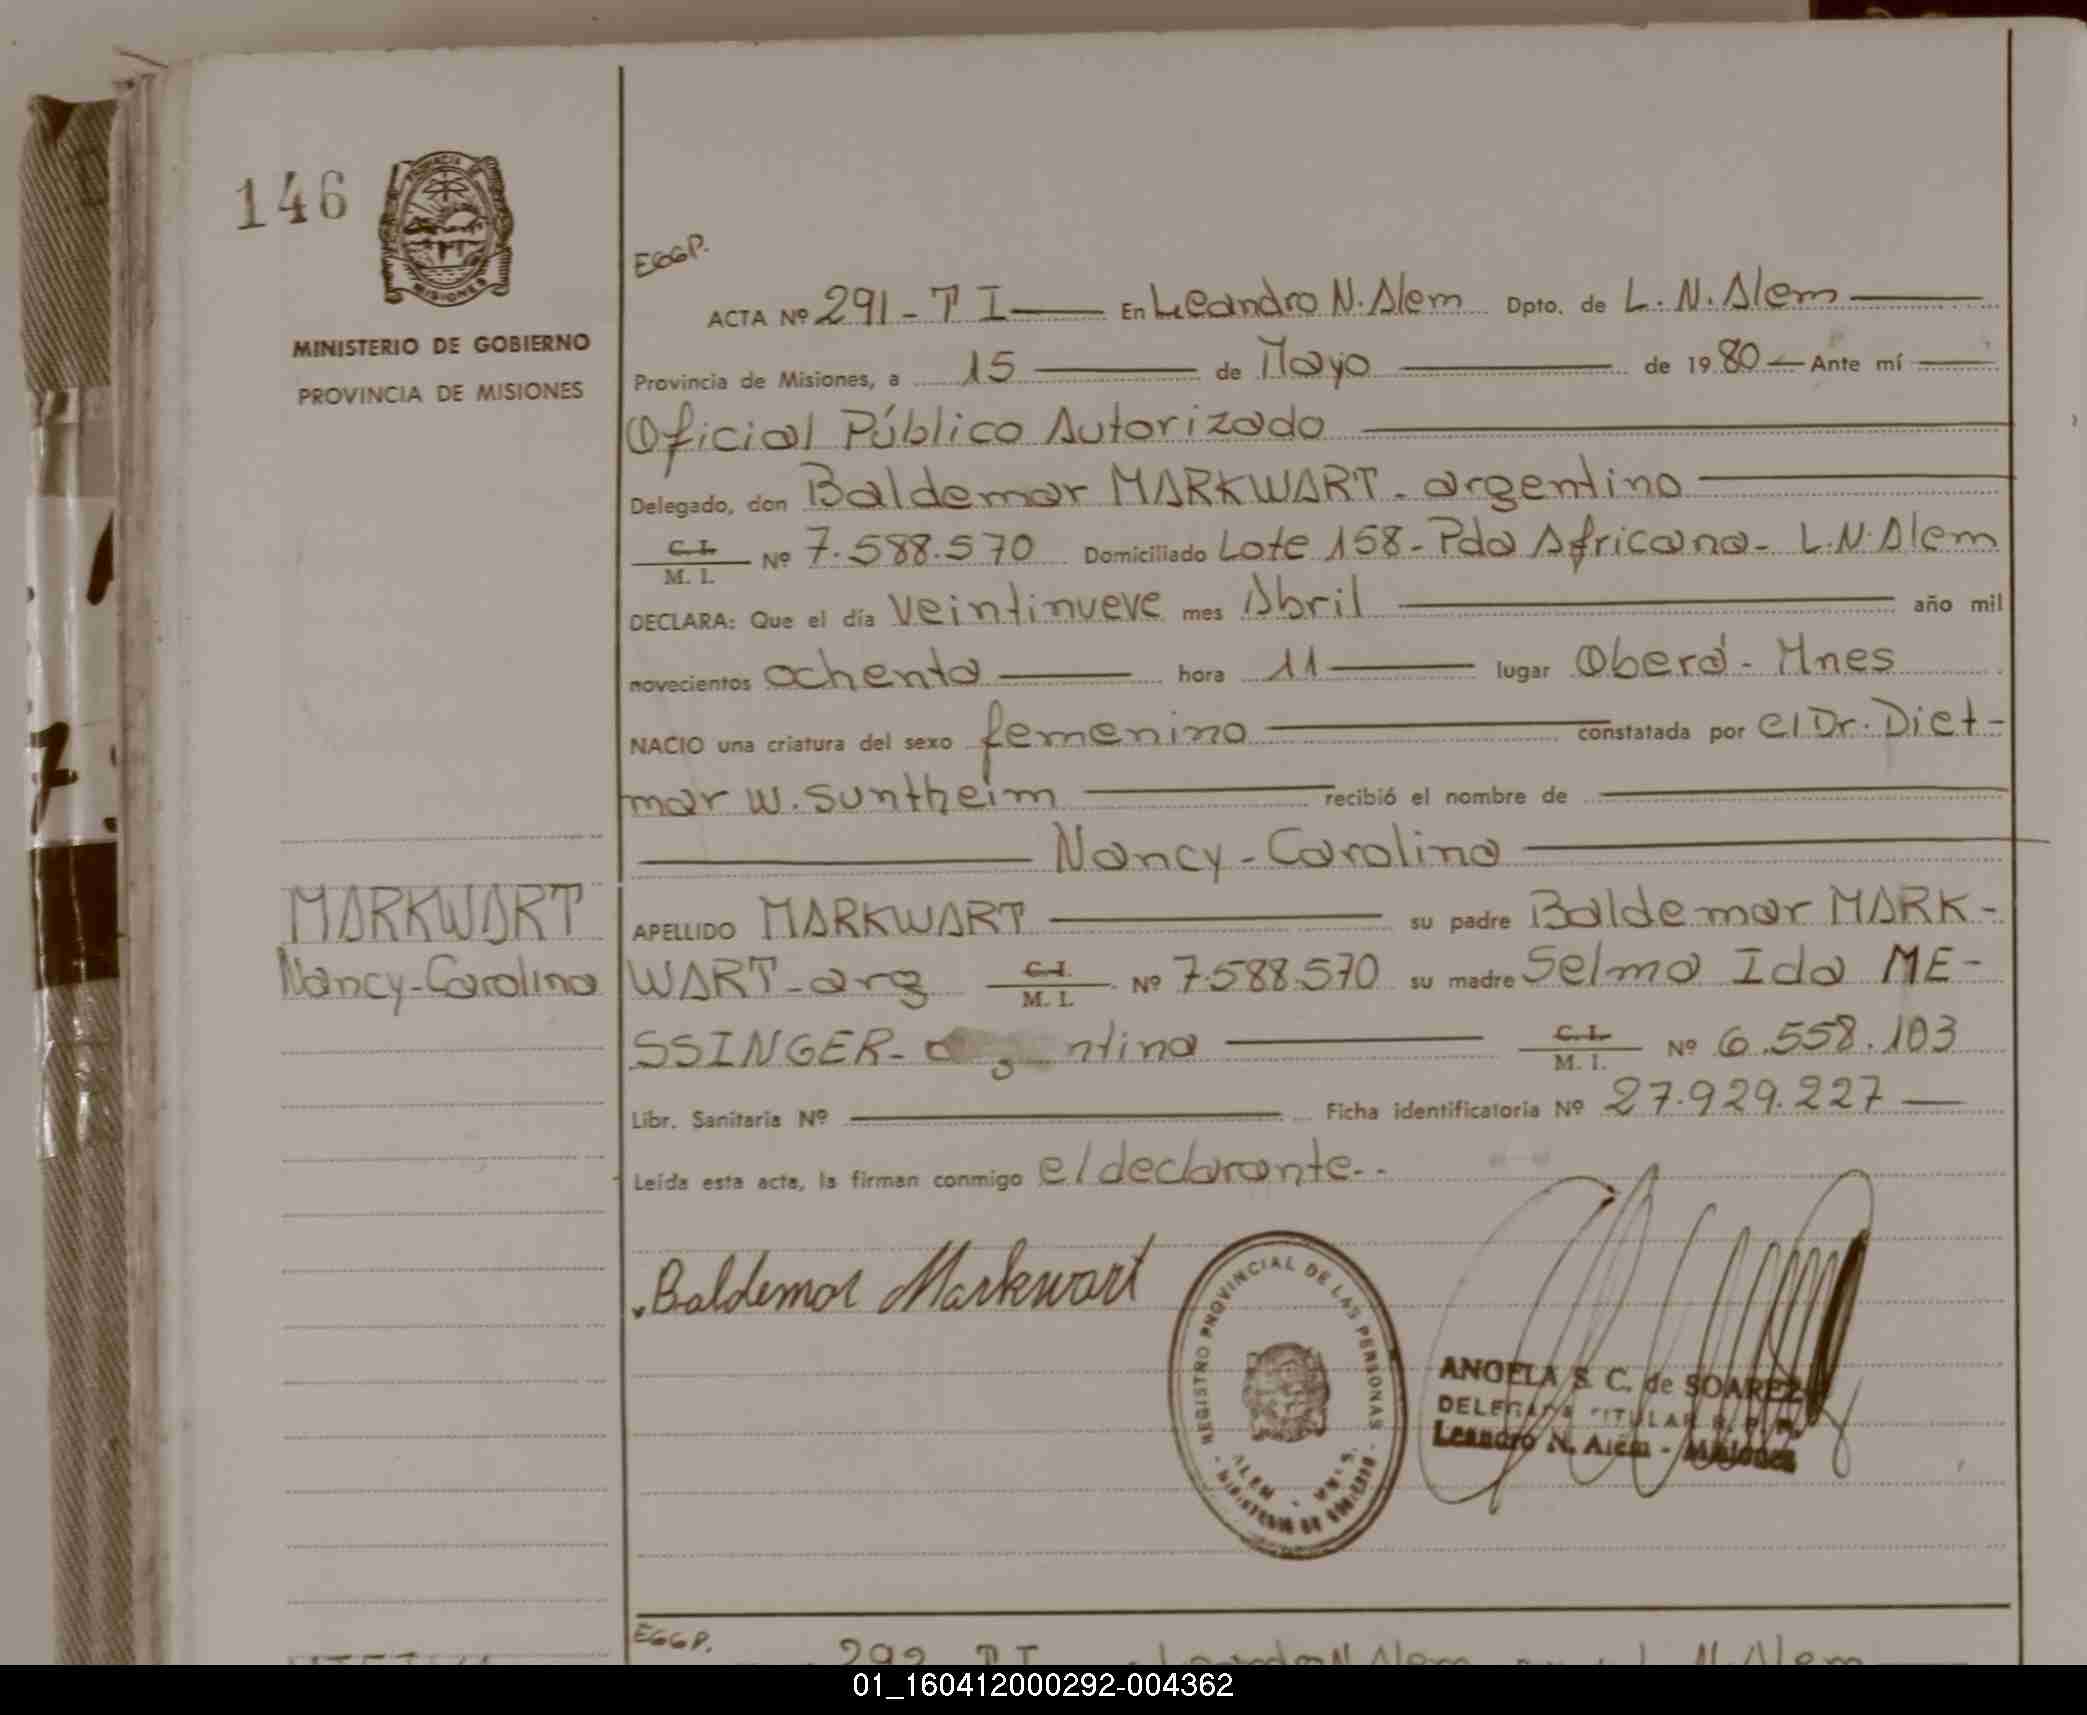 146
PROVINCIA DE
MISIONES
MINISTERIO DE GOBIERNO
PROVINCIA DE MISIONES
EGGP.
ACTA Nº 291 - T I — En Leandro N. Alem Dpto. de L. N. Alem —
Provincia de Misiones, a 15 — de Mayo — de 1980 — Ante mí —
Oficial Público Autorizado —
Delegado, don Baldemar MARKWART - argentino —
C. I. / M. I. Nº 7.588.570 Domiciliado Lote 158 - Pda Africana - L.N. Alem
DECLARA: Que el día veintinueve mes Abril — año mil
novecientos ochenta — hora 11 — lugar Oberá - Mnes
NACIO una criatura del sexo femenino — constatada por el Dr. Diet-
mar W. Suntheim — recibió el nombre de —
— Nancy - Carolina —
MARKWART
Nancy-Carolina
APELLIDO MARKWART — su padre Baldemar MARK-
WART - arg C. I. / M. I. Nº 7.588.570 su madre Selma Ida ME-
SSINGER - a g ntina — C. I. / M. I. Nº 6.558.103
Libr. Sanitaria Nº — Ficha identificatoria Nº 27.929.227 —
Leída esta acta, la firman conmigo el declarante..
Baldemar Markwart
REGISTRO PROVINCIAL DE LAS PERSONAS
ALEM - MNES.
- MINISTERIO DE GOBIERNO -
ANGELA S. C. de SOAREZ
DELEGADA TITULAR R. P. P.
Leandro N. Alem - Misiones
EGGP.
292 T I Leandro N. Alem L. N. Alem —
01_160412000292-004362